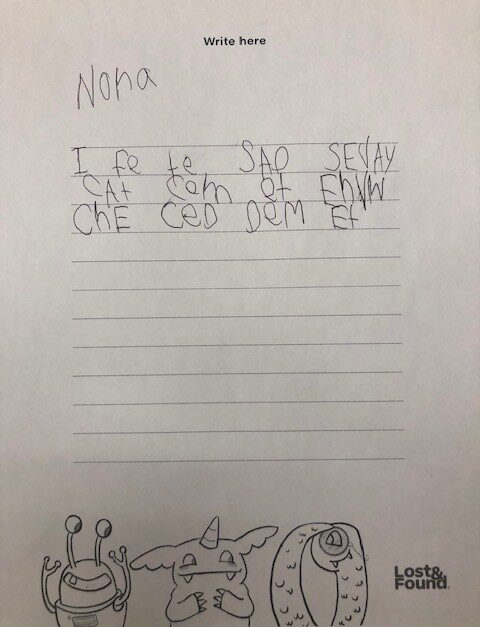 Write here
Nona
I fe te SAD SEVAY
CAt Cam et EhVW
ChE CeD DeM Et
Lost&
Found